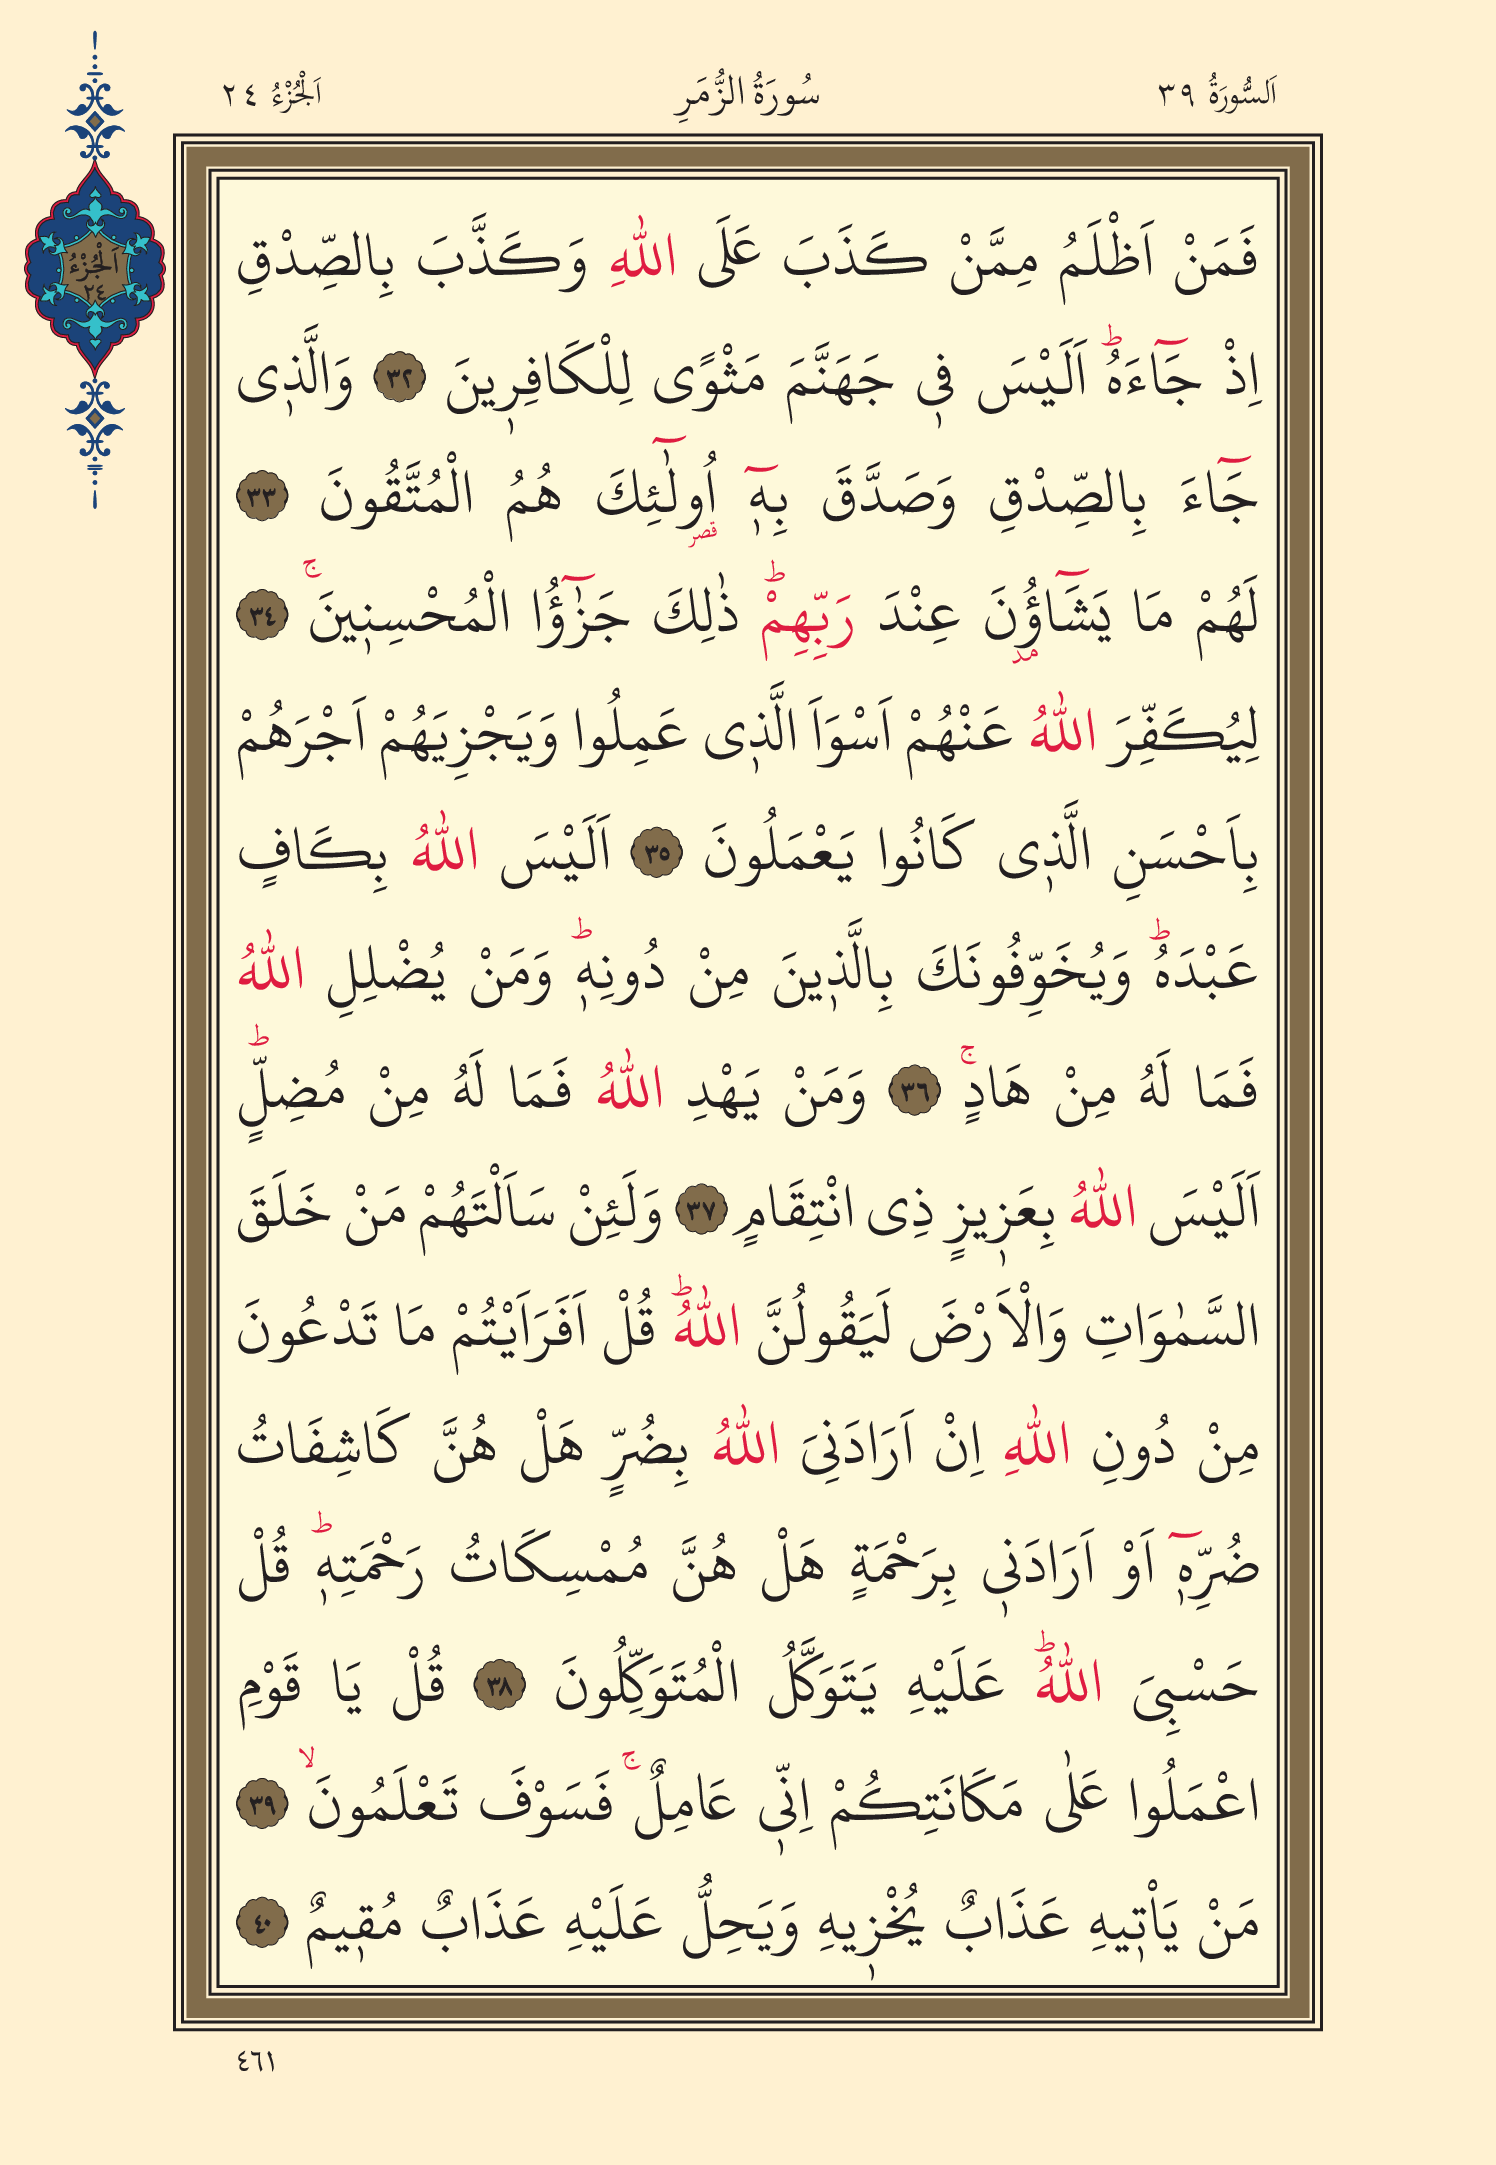 اَلسُّورَةُ ٣٩ سُورَةُ الزُّمَرِ اَلْجُزْءُ ٢٤
اَلْجُزْءُ
٢٤
فَمَنْ اَظْلَمُ مِمَّنْ كَذَبَ عَلَى اللّٰهِ وَكَذَّبَ بِالصِّدْقِ
اِذْ جَٓاءَهُۜ اَلَيْسَ فٖي جَهَنَّمَ مَثْوًى لِلْكَافِرٖينَ ﴿٣٢﴾ وَالَّذٖى
جَٓاءَ بِالصِّدْقِ وَصَدَّقَ بِهٖٓ اُو۬لٰٓئِكَ هُمُ الْمُتَّقُونَ ﴿٣٣﴾
قصر
لَهُمْ مَا يَشَٓاؤُ۫نَ عِنْدَ رَبِّهِمْؕ ذٰلِكَ جَزٰٓؤُا الْمُحْسِنٖينَۚ ﴿٣٤﴾
مد
لِيُكَفِّرَ اللّٰهُ عَنْهُمْ اَسْوَاَ الَّذٖى عَمِلُوا وَيَجْزِيَهُمْ اَجْرَهُمْ
بِاَحْسَنِ الَّذٖى كَانُوا يَعْمَلُونَ ﴿٣٥﴾ اَلَيْسَ اللّٰهُ بِكَافٍ
عَبْدَهُؕ وَيُخَوِّفُونَكَ بِالَّذٖينَ مِنْ دُونِهٖؕ وَمَنْ يُضْلِلِ اللّٰهُ
فَمَا لَهُ مِنْ هَادٍۚ ﴿٣٦﴾ وَمَنْ يَهْدِ اللّٰهُ فَمَا لَهُ مِنْ مُضِلٍّؕ
اَلَيْسَ اللّٰهُ بِعَزٖيزٍ ذِى انْتِقَامٍ ﴿٣٧﴾ وَلَئِنْ سَاَلْتَهُمْ مَنْ خَلَقَ
السَّمٰوَاتِ وَالْاَرْضَ لَيَقُولُنَّ اللّٰهُؕ قُلْ اَفَرَاَيْتُمْ مَا تَدْعُونَ
مِنْ دُونِ اللّٰهِ اِنْ اَرَادَنِىَ اللّٰهُ بِضُرٍّ هَلْ هُنَّ كَاشِفَاتُ
ضُرِّهٖٓ اَوْ اَرَادَنٖى بِرَحْمَةٍ هَلْ هُنَّ مُمْسِكَاتُ رَحْمَتِهٖؕ قُلْ
حَسْبِىَ اللّٰهُؕ عَلَيْهِ يَتَوَكَّلُ الْمُتَوَكِّلُونَ ﴿٣٨﴾ قُلْ يَا قَوْمِ
اعْمَلُوا عَلٰى مَكَانَتِكُمْ اِنّٖى عَامِلٌۚ فَسَوْفَ تَعْلَمُونَۙ ﴿٣٩﴾
مَنْ يَاْتٖيهِ عَذَابٌ يُخْزٖيهِ وَيَحِلُّ عَلَيْهِ عَذَابٌ مُقٖيمٌ ﴿٤٠﴾
٤٦١